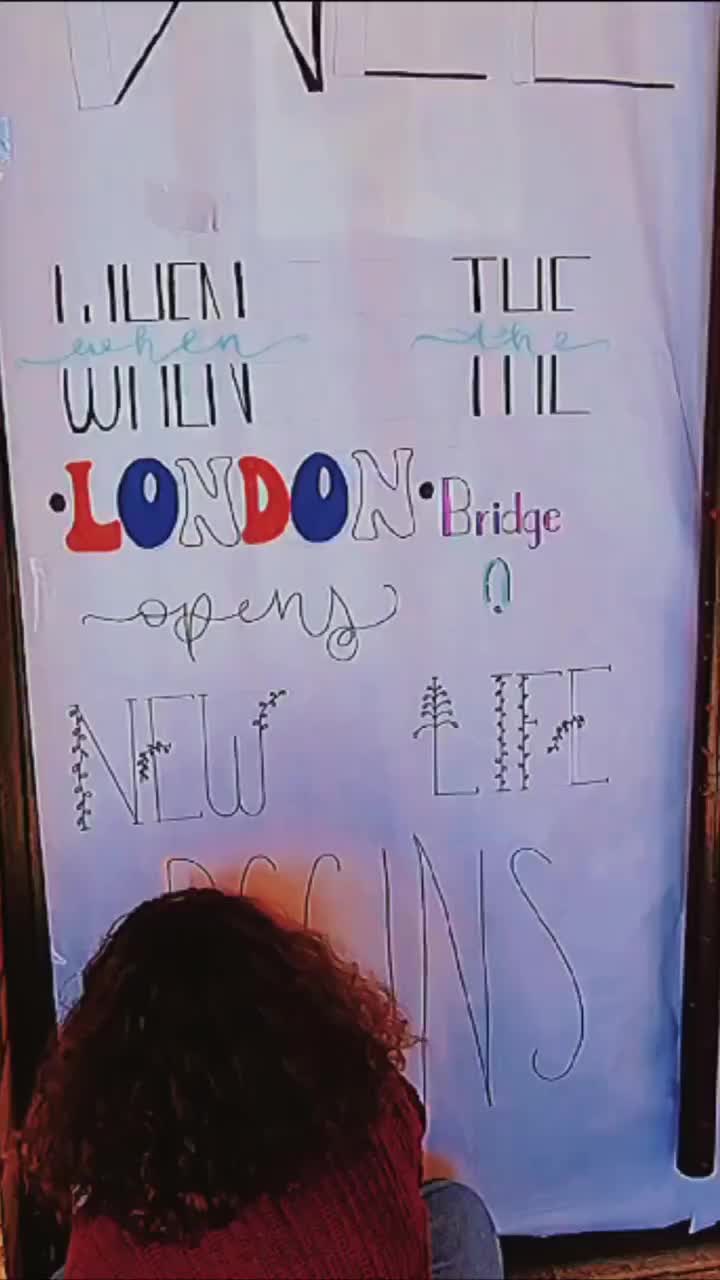 WHEN THE
when the
LONDON Bridge
opens
NEW LIFE
INS